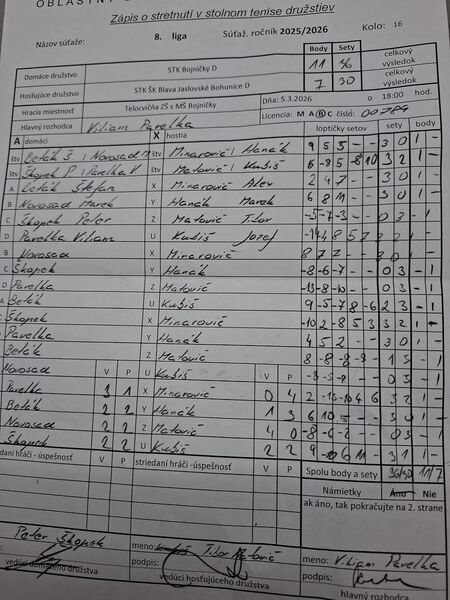 OBLASTN
Zápis o stretnutí v stolnom tenise družstiev
Názov súťaže: 8. liga Súťaž. ročník 2025/2026 Kolo: 16
Body Sety
Domáce družstvo STK Bojničky D 11 36 celkový výsledok
Hosťujúce družstvo STK ŠK Blava Jaslovské Bohunice D 7 30 celkový výsledok
Hracia miestnosť Telocvičňa ZŠ s MŠ Bojničky Dňa: 5.3.2026 o 18:00 hod.
Hlavný rozhodca Viliam Pavelka Licencia: M A B C číslo: 00784
A domáci X hostia loptičky setov sety body
štv Beták Š / Novosad M štv Minarovič / Hanák 9 5 5 - - 3 0 1 -
štv Škopek P. / Pavelka V štv Matovič / Kubiš 6 -8 5 -8 10 3 2 1 -
A Beták Štefan X Minarovič Alex 2 4 7 - - 3 0 1 -
B Novosad Marek Y Hanák Marek 6 8 11 - - 3 0 1 -
C Škopek Peter Z Matovič Tibor -5 -7 -3 - - 0 3 - 1
D Pavelka Viliam U Kubiš Jozef
B Novosad X Minarovič 8 7 2 - - 3 0 1 -
C Škopek Y Hanák -8 -6 -7 - - 0 3 - 1
D Pavelka Z Matovič -13 -8 -10 - - 0 3 - 1
A Beták U Kubiš 9 -5 -7 8 -6 2 3 - 1
Škopek X Minarovič -10 2 -8 5 3 3 2 1 -
Pavelka Y Hanák 4 5 2 - - 3 0 1 -
Beták Z Matovič 1 3 - 1
Novosad V P U Kubiš V P 0 3 - 1
Pavelka 3 1 X Minarovič 0 4
Beták 2 2 Y Hanák 1 3 6 10 5 - - 3 0 1 -
Novosad 2 2 Z Matovič 4 0 -8 -6 -2 - - 0 3 - 1
Škopek 2 2 U Kubiš 2 2 3 1 1 -
daní hráči - úspešnosť V P striedaní hráči -úspešnosť V P Spolu body a sety 36/30 11/7
Námietky Áno - Nie
ak áno, tak pokračujte na 2. strane
Peter Škopek meno: Tibor Matovič meno: Viliam Pavelka
vedúci domáceho družstva podpis: vedúci hosťujúceho družstva podpis:
hlavný rozhodca